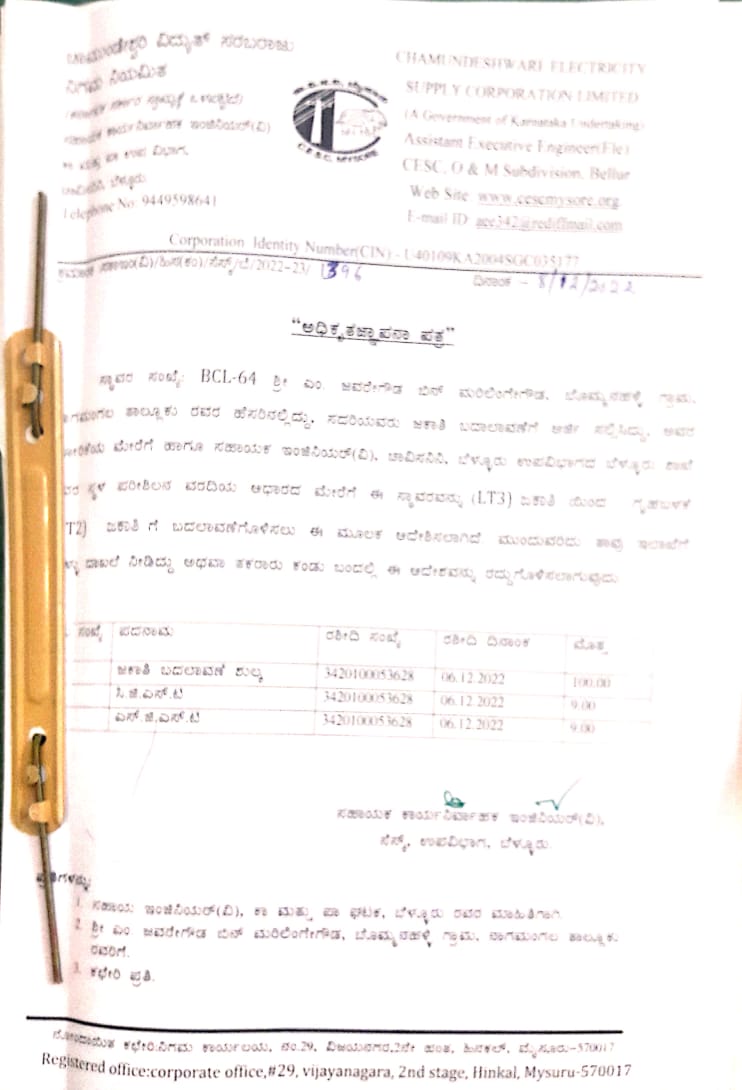 ಚಾಮುಂಡೇಶ್ವರಿ ವಿದ್ಯುತ್ ಸರಬರಾಜು
ನಿಗಮ ನಿಯಮಿತ
(ಕರ್ನಾಟಕ ಸರ್ಕಾರ ಸ್ವಾಮ್ಯಕ್ಕೆ ಒಳಪಟ್ಟಿದೆ)
ಸಹಾಯಕ ಕಾರ್ಯನಿರ್ವಾಹಕ ಇಂಜಿನಿಯರ್(ವಿ)
ಕಾ ಮತ್ತು ಪಾ ಉಪ ವಿಭಾಗ,
ಚಾವಿಸನಿನಿ, ಬೆಳ್ಳೂರು
Telephone No: 9449598641
C.E.S.C, MYSORE
CHAMUNDESHWARI ELECTRICITY
SUPPLY CORPORATION LIMITED
(A Government of Karnataka Undertaking)
Assistant Executive Engineer(Ele)
CESC, O & M Subdivision, Bellur
Web Site: www.cescmysore.org
E-mail ID: aee342@rediffmail.com
Corporation Identity Number(CIN) - U40109KA2004SGC035177
ಕ್ರಮಾಂಕ ಸಕಾಇಂ(ವಿ)/ಹಿಸ(ಕಂ)/ಸೆಸ್ಕ್/ಬೆ/2022-23/ 1396
ದಿನಾಂಕ - 8/12/2022
“ಅಧಿಕೃತಜ್ಞಾಪನಾ ಪತ್ರ”
ಸ್ಥಾವರ ಸಂಖ್ಯೆ: BCL-64 ಶ್ರೀ ಎಂ. ಜವರೇಗೌಡ ಬಿನ್ ಮರಿಲಿಂಗೇಗೌಡ, ಬೊಮ್ಮನಹಳ್ಳಿ ಗ್ರಾಮ,
ನಾಗಮಂಗಲ ತಾಲ್ಲೂಕು ರವರ ಹೆಸರಿನಲ್ಲಿದ್ದು, ಸದರಿಯವರು ಜಕಾತಿ ಬದಲಾವಣೆಗೆ ಅರ್ಜಿ ಸಲ್ಲಿಸಿದ್ದು, ಅವರ
ಕೋರಿಕೆಯ ಮೇರೆಗೆ ಹಾಗೂ ಸಹಾಯಕ ಇಂಜಿನಿಯರ್(ವಿ), ಚಾವಿಸನಿನಿ, ಬೆಳ್ಳೂರು ಉಪವಿಭಾಗದ ಬೆಳ್ಳೂರು ಶಾಖೆ
ರವರ ಸ್ಥಳ ಪರಿಶೀಲನ ವರದಿಯ ಆಧಾರದ ಮೇರೆಗೆ ಈ ಸ್ಥಾವರವನ್ನು (LT3) ಜಕಾತಿ ಯಿಂದ ಗೃಹಬಳಕೆ
T2) ಜಕಾತಿ ಗೆ ಬದಲಾವಣೆಗೊಳಿಸಲು ಈ ಮೂಲಕ ಆದೇಶಿಸಲಾಗಿದೆ ಮುಂದುವರಿದು ತಾವು ಇಲಾಖೆಗೆ
ದಾಖಲೆ ನೀಡಿದ್ದು ಅಥವಾ ತಕರಾರು ಕಂಡು ಬಂದಲ್ಲಿ ಈ ಆದೇಶವನ್ನು ರದ್ದುಗೊಳಿಸಲಾಗುವುದು
ಸಂಖ್ಯೆ ಪದನಾಮ ರಶೀದಿ ಸಂಖ್ಯೆ ರಶೀದಿ ದಿನಾಂಕ ಮೊತ್ತ
ಜಕಾತಿ ಬದಲಾವಣೆ ಶುಲ್ಕ 3420100053628 06.12.2022 100.00
ಸಿ.ಜಿ.ಎಸ್.ಟಿ 3420100053628 06.12.2022 9.00
ಎಸ್.ಜಿ.ಎಸ್.ಟಿ 3420100053628 06.12.2022 9.00
ಸಹಾಯಕ ಕಾರ್ಯನಿರ್ವಾಹಕ ಇಂಜಿನಿಯರ್(ವಿ),
ಸೆಸ್ಕ್, ಉಪವಿಭಾಗ, ಬೆಳ್ಳೂರು.
ಪ್ರತಿಗಳನ್ನು:
1. ಸಹಾಯ ಇಂಜಿನಿಯರ್(ವಿ), ಕಾ ಮತ್ತು ಪಾ ಘಟಕ, ಬೆಳ್ಳೂರು ರವರ ಮಾಹಿತಿಗಾಗಿ.
2. ಶ್ರೀ ಎಂ ಜವರೇಗೌಡ ಬಿನ್ ಮರಿಲಿಂಗೇಗೌಡ, ಬೊಮ್ಮನಹಳ್ಳಿ ಗ್ರಾಮ, ನಾಗಮಂಗಲ ತಾಲ್ಲೂಕು
ರವರಿಗೆ.
3. ಕಛೇರಿ ಪ್ರತಿ.
ನೋಂದಾಯಿತ ಕಛೇರಿ:ನಿಗಮ ಕಾರ್ಯಾಲಯ, ನಂ.29, ವಿಜಯನಗರ,2ನೇ ಹಂತ, ಹಿನಕಲ್, ಮೈಸೂರು-570017
Registered office:corporate office,#29, vijayanagara, 2nd stage, Hinkal, Mysuru-570017